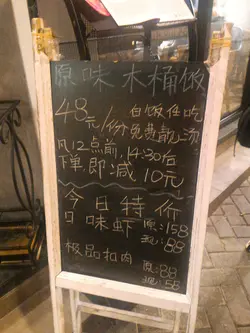 原味木桶饭
48元/份 白饭任吃
免费敬汤
凡12点前，14:30后
下单，即减10元
今日特价
口味虾 原：158
现：88
极品扣肉 原：88
现：58